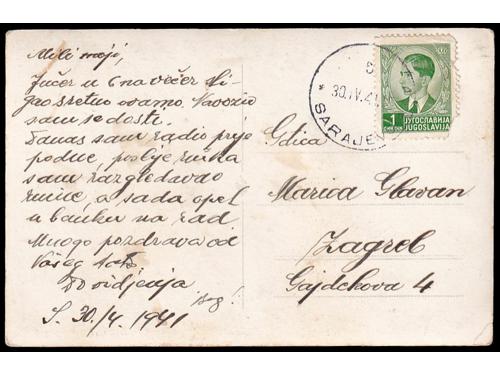 Mili moji,
Jučer u 6 na večer sti-
gao sretno ovamo. Navozio
sam se dosti.
Danas sam radio prije
podne, poslije ručka
sam razgledavao
a sada opet
u banku na rad
Mnogo pozdrava od
Vašeg
Do vidjenja
S. 30/4. 1941
30.IV.41
* SARAJEV
1
ДИН DIN
ЈУГОСЛАВИЈА
JUGOSLAVIJA
Gdica
Marica Glavan
Zagreb
Gajdekova 4